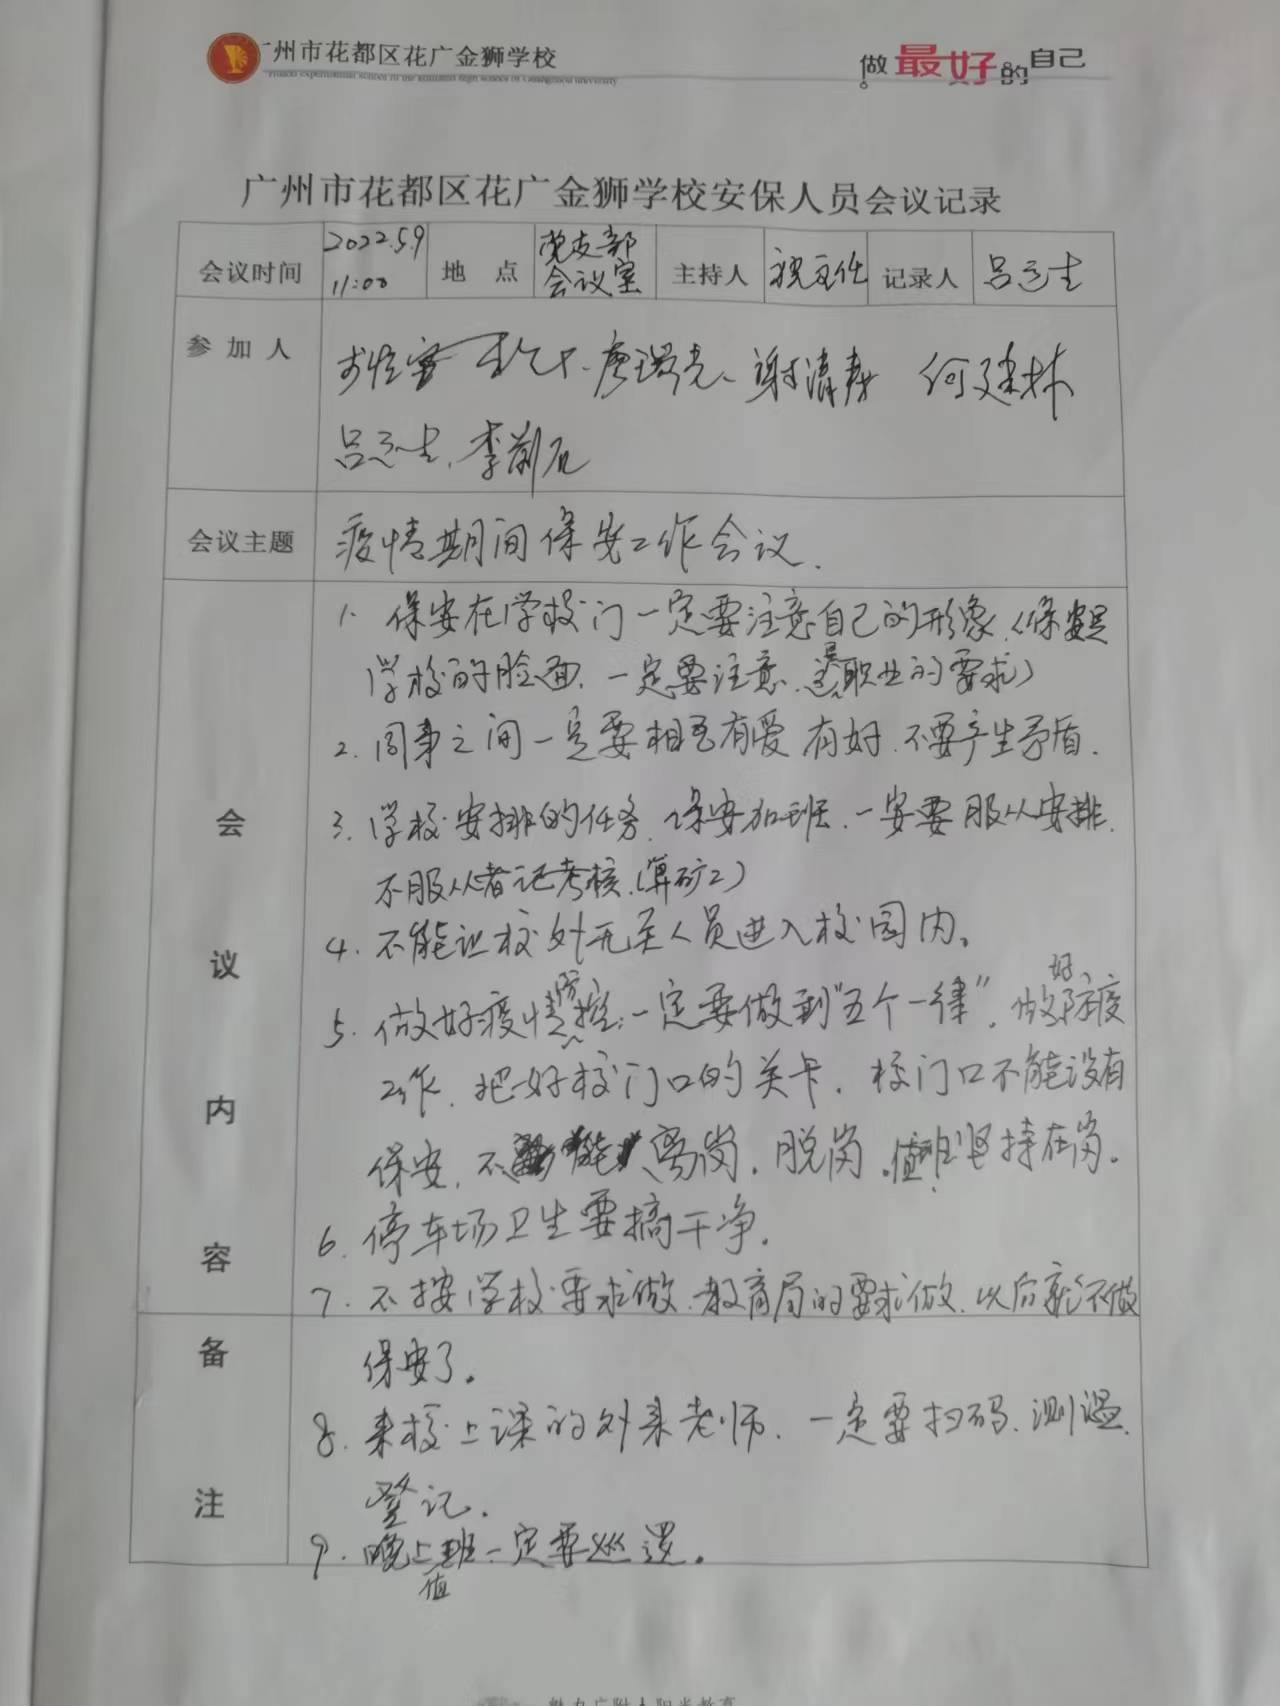 州市花都区花广金狮学校
做最好的自己
广州市花都区花广金狮学校安保人员会议记录
会议时间 2022.5.9 11:00 地 点 党支部会议室 主持人 主任 记录人 吕志生
参加人
唐瑞光、谢清 何建林
吕志生、李
会议主题 疫情期间保安工作会议.
会议内容
1. 保安在学校门一定要注意自己的形象.(保安是
学校的脸面.一定要注意.这是职业的要求)
2. 同事之间一定要相互有爱 有好.不要产生矛盾.
3. 学校安排的任务.保安加班.一安要服从安排.
不服从者记考核.(算矿工)
4. 不能让校外无关人员进入校园内。
5. 做好疫情防控:一定要做到"五个一律".做好防疫
工作.把好校门口的关卡.校门口不能没有
保安.不能离岗.脱岗.值班坚持在岗。
6. 停车场卫生要搞干净.
7. 不按学校要求做.教育局的要求做.以后就不做
备注
保安了。
8. 来校上课的外来老师.一定要扫码.测温.
登记.
9. 晚上值班一定要巡逻。